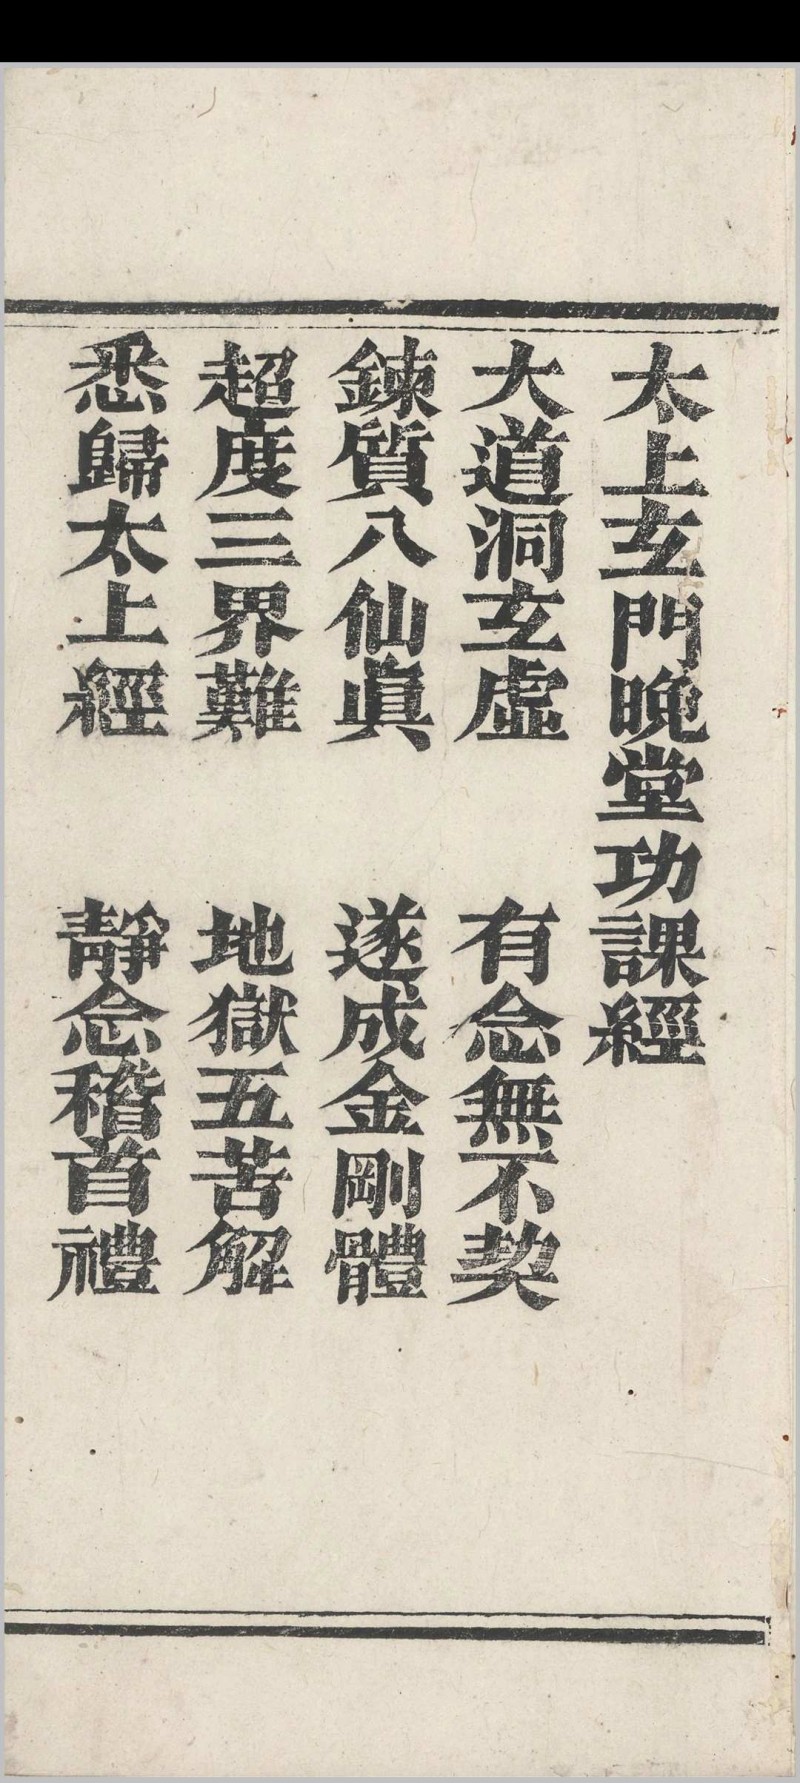 太上玄門晚堂功課經
大道洞玄虛　有念無不契
鍊質入仙眞　遂成金剛體
超度三界難　地獄五苦解
悉歸太上經　靜念稽首禮